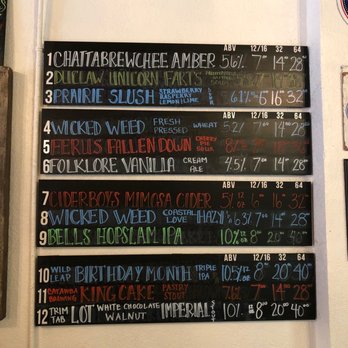 ABV 12/16 32 64
1 CHATTABREWCHEE AMBER 5.6% 7 14 28
2 DUCLAW UNICORN FARTS
3 PRAIRIE SLUSH STRAWBERRY RASPBERRY LEMON LIME 6.1% 8 16 32
ABV 12/16 32 64
4 WICKED WEED FRESH PRESSED WHEAT 7 14 28
5 FALLEN DOWN CHERRY PIE
6 FOLKLORE VANILLA CREAM ALE 4.5% 7 14 28
ABV 12/16 32 64
7 CIDERBOYS MIMOSA CIDER 5% 12 OZ 6 16 32
8 WICKED WEED COASTAL LOVE HAZY 6.3% 7 14 28
9 BELLS HOPSLAM IPA 10% 12 OZ 8 20 40
ABV 12/16 32 64
10 WILD LEAP BIRTHDAY MONTH TRIPLE IPA 10.5% 12 OZ 8 20 40
11 CATAWBA BREWING KING CAKE PASTRY STOUT 7.6% 7 14 28
12 TRIM TAB LOT WHITE CHOCOLATE WALNUT IMPERIAL STOUT 10% 8 20 40